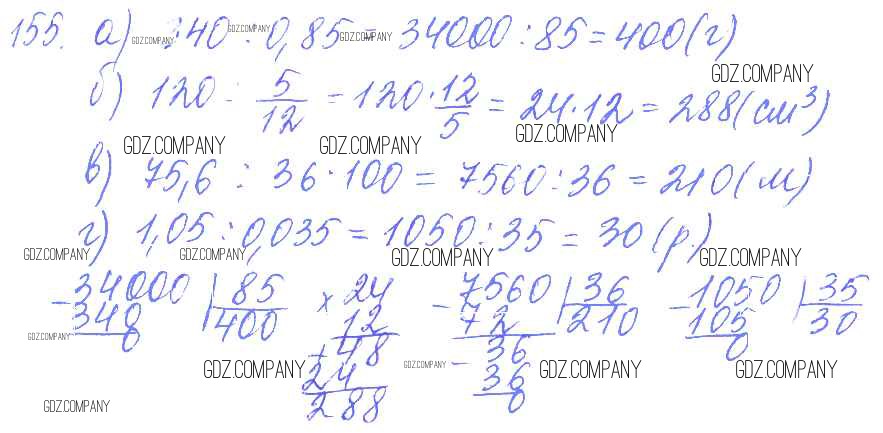 155. а) 340 : 0,85 = 34000 : 85 = 400 (г)
GDZ.COMPANY GDZ.COMPANY GDZ.COMPANY
GDZ.COMPANY
б) 120 : 5/12 = 120 · 12/5 = 24 · 12 = 288 (см³)
GDZ.COMPANY GDZ.COMPANY GDZ.COMPANY
в) 75,6 : 36 · 100 = 7560 : 36 = 210 (м)
г) 1,05 : 0,035 = 1050 : 35 = 30 (р.)
GDZ.COMPANY GDZ.COMPANY GDZ.COMPANY GDZ.COMPANY
- 34000 | 85 × 24 - 7560 | 36 - 1050 | 35
340 400 12 72 210 105 30
0 + 48 - 36 0
GDZ.COMPANY GDZ.COMPANY GDZ.COMPANY GDZ.COMPANY GDZ.COMPANY
24 36
288 0
GDZ.COMPANY